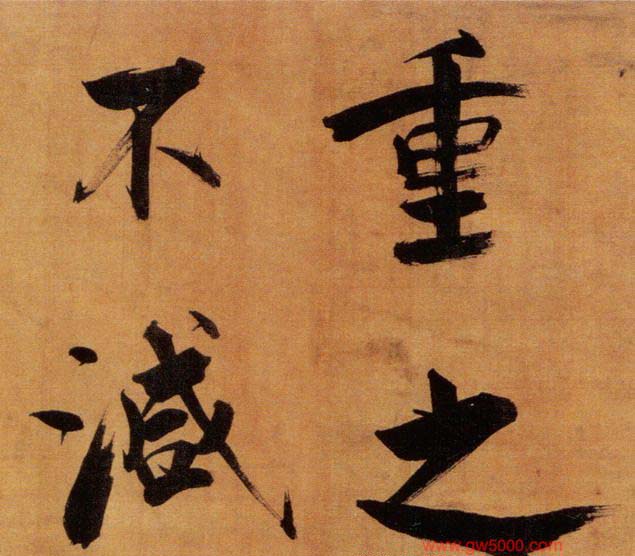 重之
不減
www.gw5000.com